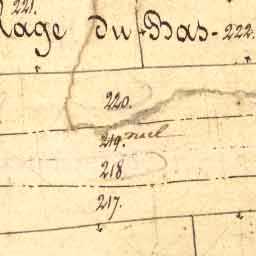 221.
lage du Bas-
222.
220.
219.
218.
217.